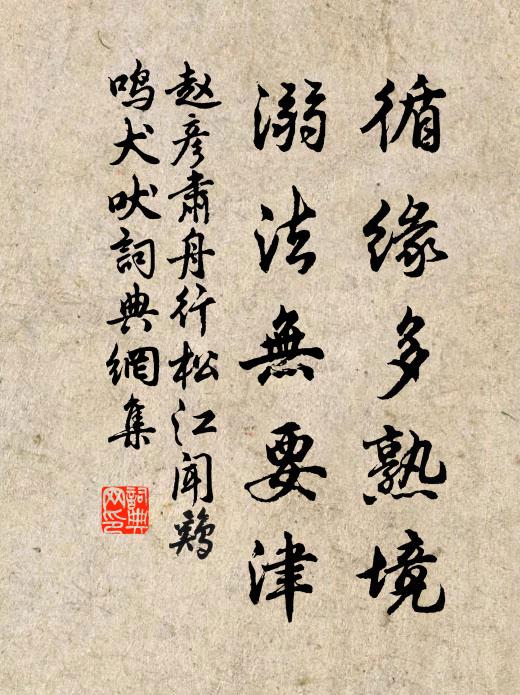 循缘多熟境
溺法無要津
赵彦肃舟行松江闻鸡
鸣犬吠詞典網集
詞典网印